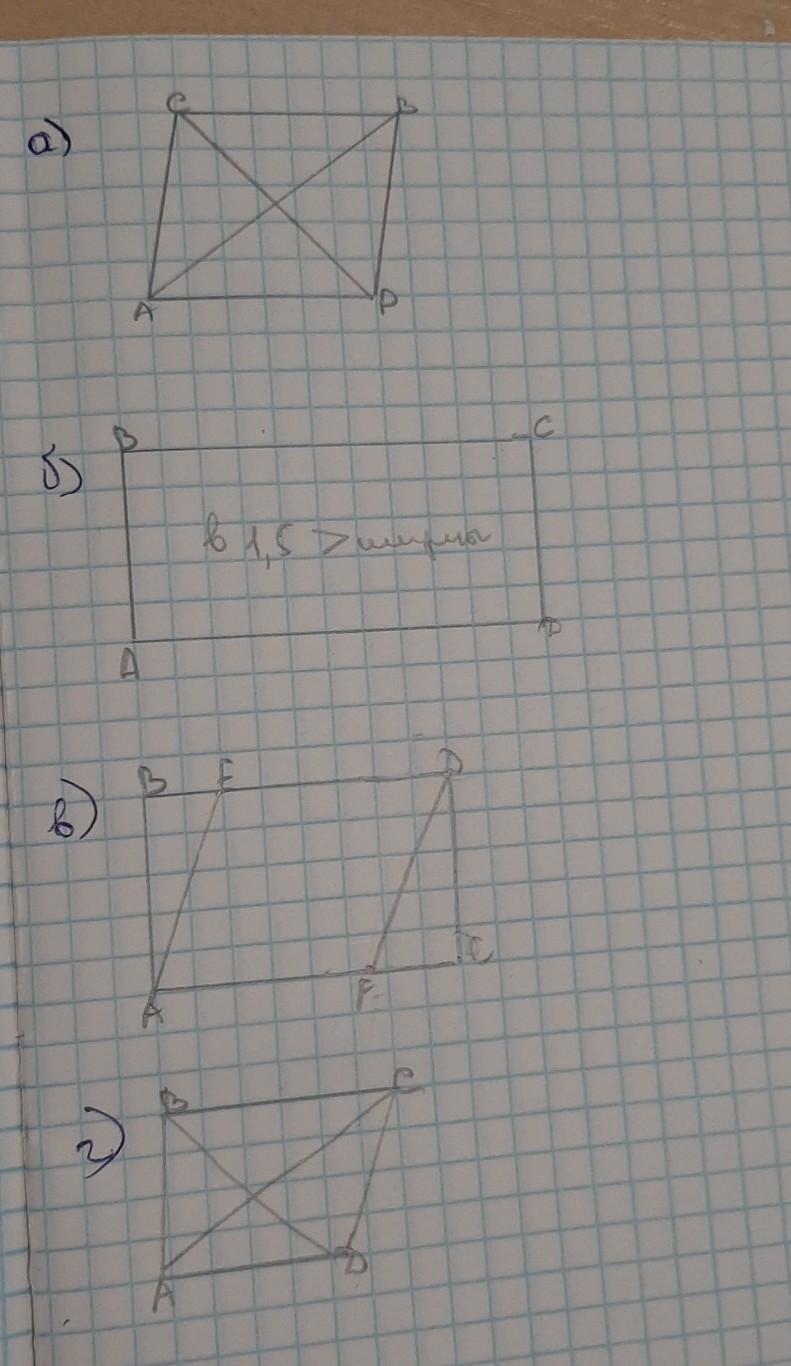 а)
C B
A D
б)
B C
в 1,5 > ширины
A D
в)
B E D
A F C
г)
B C
A D